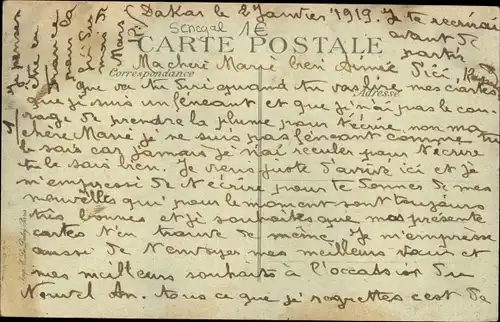 Dakar le 2 Janvier 1919. Je te recrirai
avant de
partir
d'ici,
Senegal 1€
CARTE POSTALE
Correspondance
Adresse
Ma chère Marie bien Aimée
que va tu dire quand tu vas lire mes cartes
que je suis un féneant et que je n'ai pas le cou
rage de prendre la plume pour t'écrire, non ma
chère Marie je ne suis pas féneant comme tu
le sais car jamais je n'ai reculer pour t'écrire
tu le sais bien. Je viens juste d'arrivé ici et je
m'empresse de t'écrire pour te donner de mes
nouvelles qui pour le moment sont toujours
très bonnes et je souhaites que mes présente
cartes t'en trouve de même. Je m'empresse
aussi de t'envoyer mes meilleurs vœux et
mes meilleurs souhaits à l'occasion du
Nouvel An. tous ce que je regrettes c'est de
Je pense
être en
France
pour la
fin du
mois
Mars